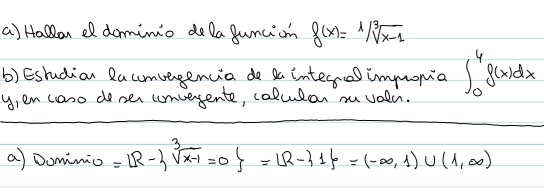 a) Hallar el dominio de la función f(x) = 1/∛(x-1)
b) Estudiar la convergencia de la integral impropia ∫₀⁴ f(x)dx
y, en caso de ser convergente, calcular su valor.
a) Dominio = ℝ - { ∛(x-1) = 0 } = ℝ - {1} = (-∞, 1) ∪ (1, ∞)